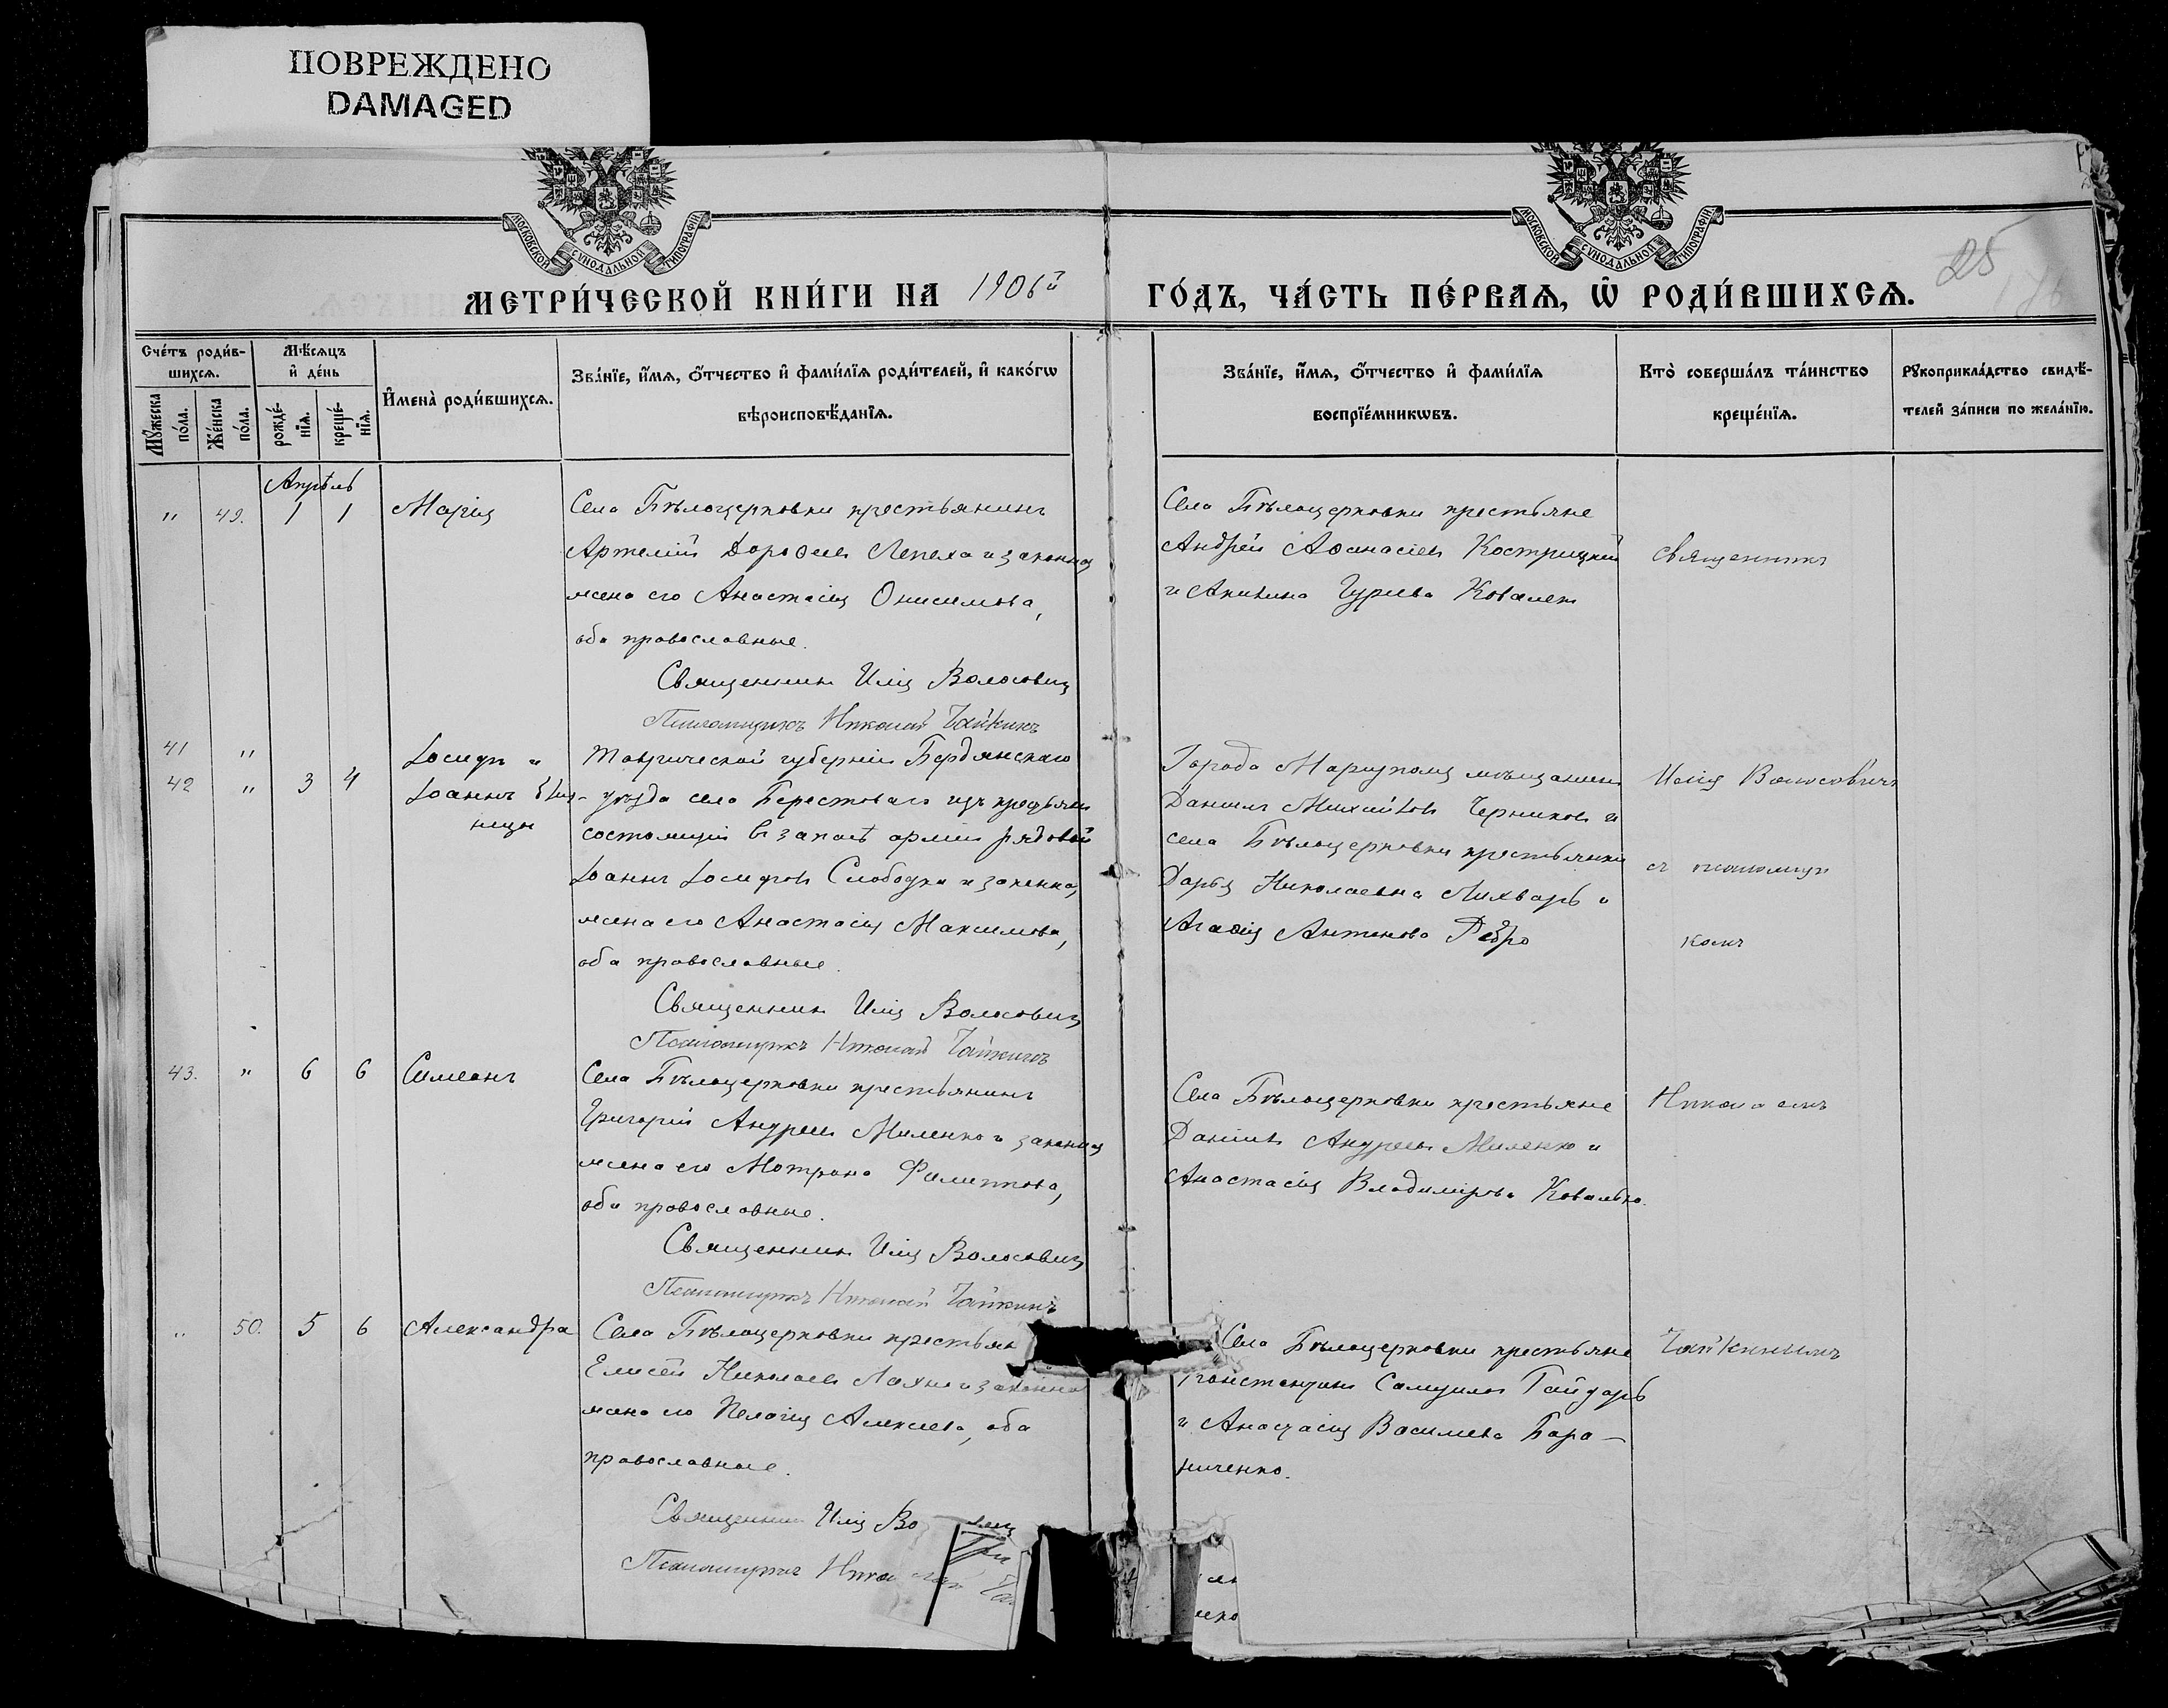 ПОВРЕЖДЕНО
DAMAGED
МОСКОВСКОЙ СѴНОДАЛЬНОЙ ТИПОГРАФІИ
МОСКОВСКОЙ СѴНОДАЛЬНОЙ ТИПОГРАФІИ
МЕТРИ́ЧЕСКОЙ КНИ́ГИ НА 1906й ГО́ДЪ, ЧА́СТЬ ПЕ́РВАѦ, Ѿ РОДИ́ВШИХСѦ.
25
Сче́тъ роди́в-
шихсѧ.
Мѣ́сѧцъ
и҆ де́нь
И҆мена̀ роди́вшихсѧ.
Зва́нїе, и҆́мѧ, ѻ҆́тчество и҆ фами́лїѧ роди́телей, и҆ како́гѡ
вѣроисповѣ́данїѧ.
Зва́нїе, и҆́мѧ, ѻ҆́тчество и҆ фами́лїѧ
воспрїе́мникѡвъ.
Кто̀ соверша́лъ та́инство
креще́нїѧ.
Рꙋкоприкла́дство свидѣ́-
телей за́писи по жела́нїю.
Мꙋ́жеска
по́ла.
Же́нска
по́ла.
рожде́-
нїѧ.
креще́-
нїѧ.
Апрѣль
" 49. 1 1 Марія
Села Бѣлоцерковки крестьянинъ
Артемій Дорофеев Лепеха и законная
жена его Анастасія Онисимова,
оба православные.
Священник Илія Волосович
Псаломщикъ Николай Чайкинъ
Села Бѣлоцерковки крестьяне
Андрей Афанасіев Кострицкій
и Акилина Гуриева Ковален
священникъ
41 "
42 " 3 4
Іосифъ и
Іоаннъ близ-
нецы
Таврической губерніи Бердянскаго
уѣзда села Берестоваго изъ крестьян
состоящій в запасѣ арміи рядовой
Іоаннъ Іосифов Слободян и законная
жена его Анастасія Максимова,
оба православные.
Священник Илія Волосович
Псаломщикъ Николай Чайкинъ
Города Маріуполя мѣщанин
Даниил Михайлов Черников и
села Бѣлоцерковки крестьянки
Дарья Николаевна Лихварь и
Агафія Антонова Ребро
Иліѧ Волосовичъ
съ псаломщи
комъ
43. " 6 6 Симеонъ
Села Бѣлоцерковки крестьянинъ
Григорій Андреев Миленко и законная
жена его Мотрона Филиппова,
оба православные.
Священник Илія Волосович
Псаломщикъ Николай Чайкинъ
Села Бѣлоцерковки крестьяне
Даніил Андреев Миленко и
Анастасія Владимірова Ковалько.
Николаемъ
" 50. 5 6 Александра
Села Бѣлоцерковки крестьян
Елисей Николаев Лахно и законная
жена его Пелагія Алексеева, оба
православные.
Священник Илія Во
Псаломщикъ Нико
Села Бѣлоцерковки крестьяне
Константин Самуилов Гайдарь
и Анастасія Васильева Бара-
ниченко.
Чайкинымъ